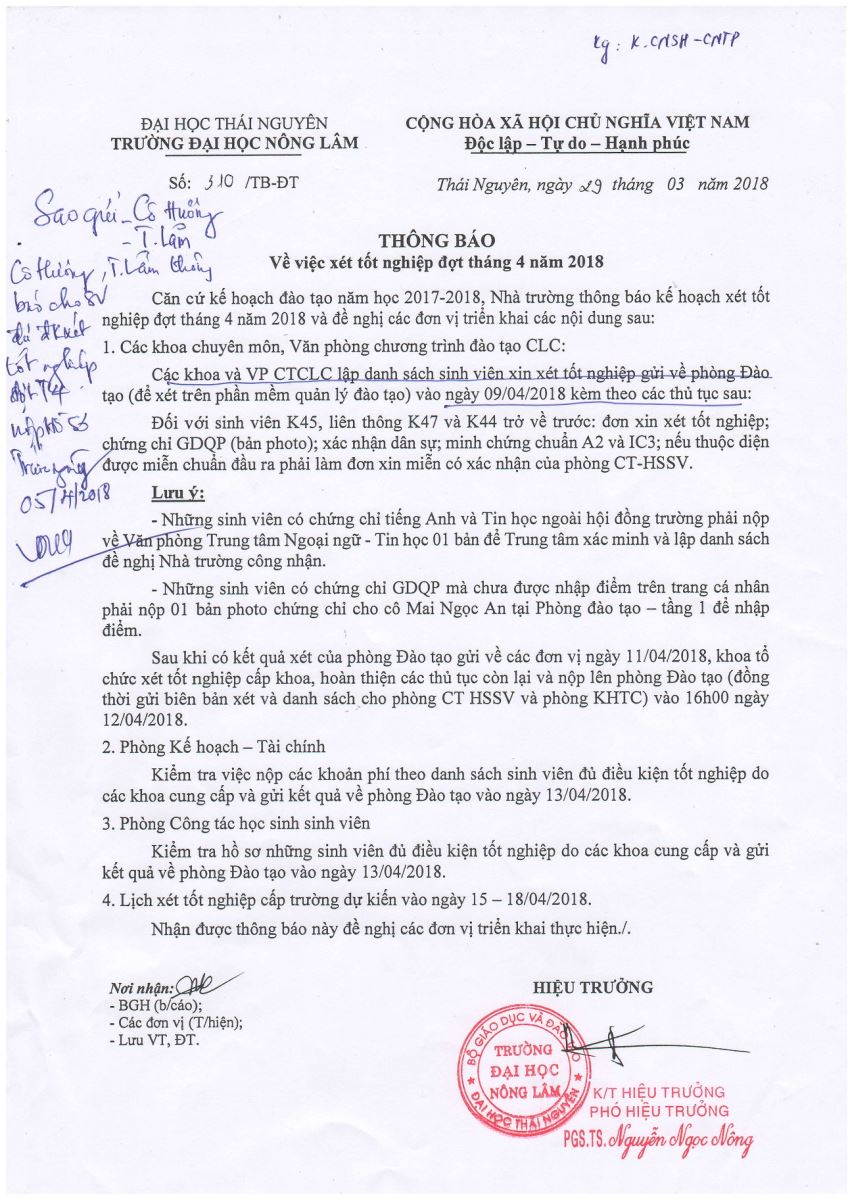 Kg: K. CNSH-CNTP
ĐẠI HỌC THÁI NGUYÊN
TRƯỜNG ĐẠI HỌC NÔNG LÂM
CỘNG HÒA XÃ HỘI CHỦ NGHĨA VIỆT NAM
Độc lập – Tự do – Hạnh phúc
Số: 310 /TB-ĐT
Thái Nguyên, ngày 29 tháng 03 năm 2018
Sao gửi - Cô Hường
- T. Lâm
Cô Hường, T. Lâm thông
báo cho SV
đủ đk xét
tốt nghiệp
đợt T4
nộp hồ sơ
Trước ngày
05/4/2018
THÔNG BÁO
Về việc xét tốt nghiệp đợt tháng 4 năm 2018
Căn cứ kế hoạch đào tạo năm học 2017-2018, Nhà trường thông báo kế hoạch xét tốt
nghiệp đợt tháng 4 năm 2018 và đề nghị các đơn vị triển khai các nội dung sau:
1. Các khoa chuyên môn, Văn phòng chương trình đào tạo CLC:
Các khoa và VP CTCLC lập danh sách sinh viên xin xét tốt nghiệp gửi về phòng Đào
tạo (để xét trên phần mềm quản lý đào tạo) vào ngày 09/04/2018 kèm theo các thủ tục sau:
Đối với sinh viên K45, liên thông K47 và K44 trở về trước: đơn xin xét tốt nghiệp;
chứng chỉ GDQP (bản photo); xác nhận dân sự; minh chứng chuẩn A2 và IC3; nếu thuộc diện
được miễn chuẩn đầu ra phải làm đơn xin miễn có xác nhận của phòng CT-HSSV.
Lưu ý:
- Những sinh viên có chứng chỉ tiếng Anh và Tin học ngoài hội đồng trường phải nộp
về Văn phòng Trung tâm Ngoại ngữ - Tin học 01 bản để Trung tâm xác minh và lập danh sách
đề nghị Nhà trường công nhận.
- Những sinh viên có chứng chỉ GDQP mà chưa được nhập điểm trên trang cá nhân
phải nộp 01 bản photo chứng chỉ cho cô Mai Ngọc An tại Phòng đào tạo – tầng 1 để nhập
điểm.
Sau khi có kết quả xét của phòng Đào tạo gửi về các đơn vị ngày 11/04/2018, khoa tổ
chức xét tốt nghiệp cấp khoa, hoàn thiện các thủ tục còn lại và nộp lên phòng Đào tạo (đồng
thời gửi biên bản xét và danh sách cho phòng CT HSSV và phòng KHTC) vào 16h00 ngày
12/04/2018.
2. Phòng Kế hoạch – Tài chính
Kiểm tra việc nộp các khoản phí theo danh sách sinh viên đủ điều kiện tốt nghiệp do
các khoa cung cấp và gửi kết quả về phòng Đào tạo vào ngày 13/04/2018.
3. Phòng Công tác học sinh sinh viên
Kiểm tra hồ sơ những sinh viên đủ điều kiện tốt nghiệp do các khoa cung cấp và gửi
kết quả về phòng Đào tạo vào ngày 13/04/2018.
4. Lịch xét tốt nghiệp cấp trường dự kiến vào ngày 15 – 18/04/2018.
Nhận được thông báo này đề nghị các đơn vị triển khai thực hiện./.
Nơi nhận:
- BGH (b/cáo);
- Các đơn vị (T/hiện);
- Lưu VT, ĐT.
HIỆU TRƯỞNG
BỘ GIÁO DỤC VÀ ĐÀO TẠO
TRƯỜNG
ĐẠI HỌC
NÔNG LÂM
ĐẠI HỌC THÁI NGUYÊN
K/T HIỆU TRƯỞNG
PHÓ HIỆU TRƯỞNG
PGS.TS. Nguyễn Ngọc Nông